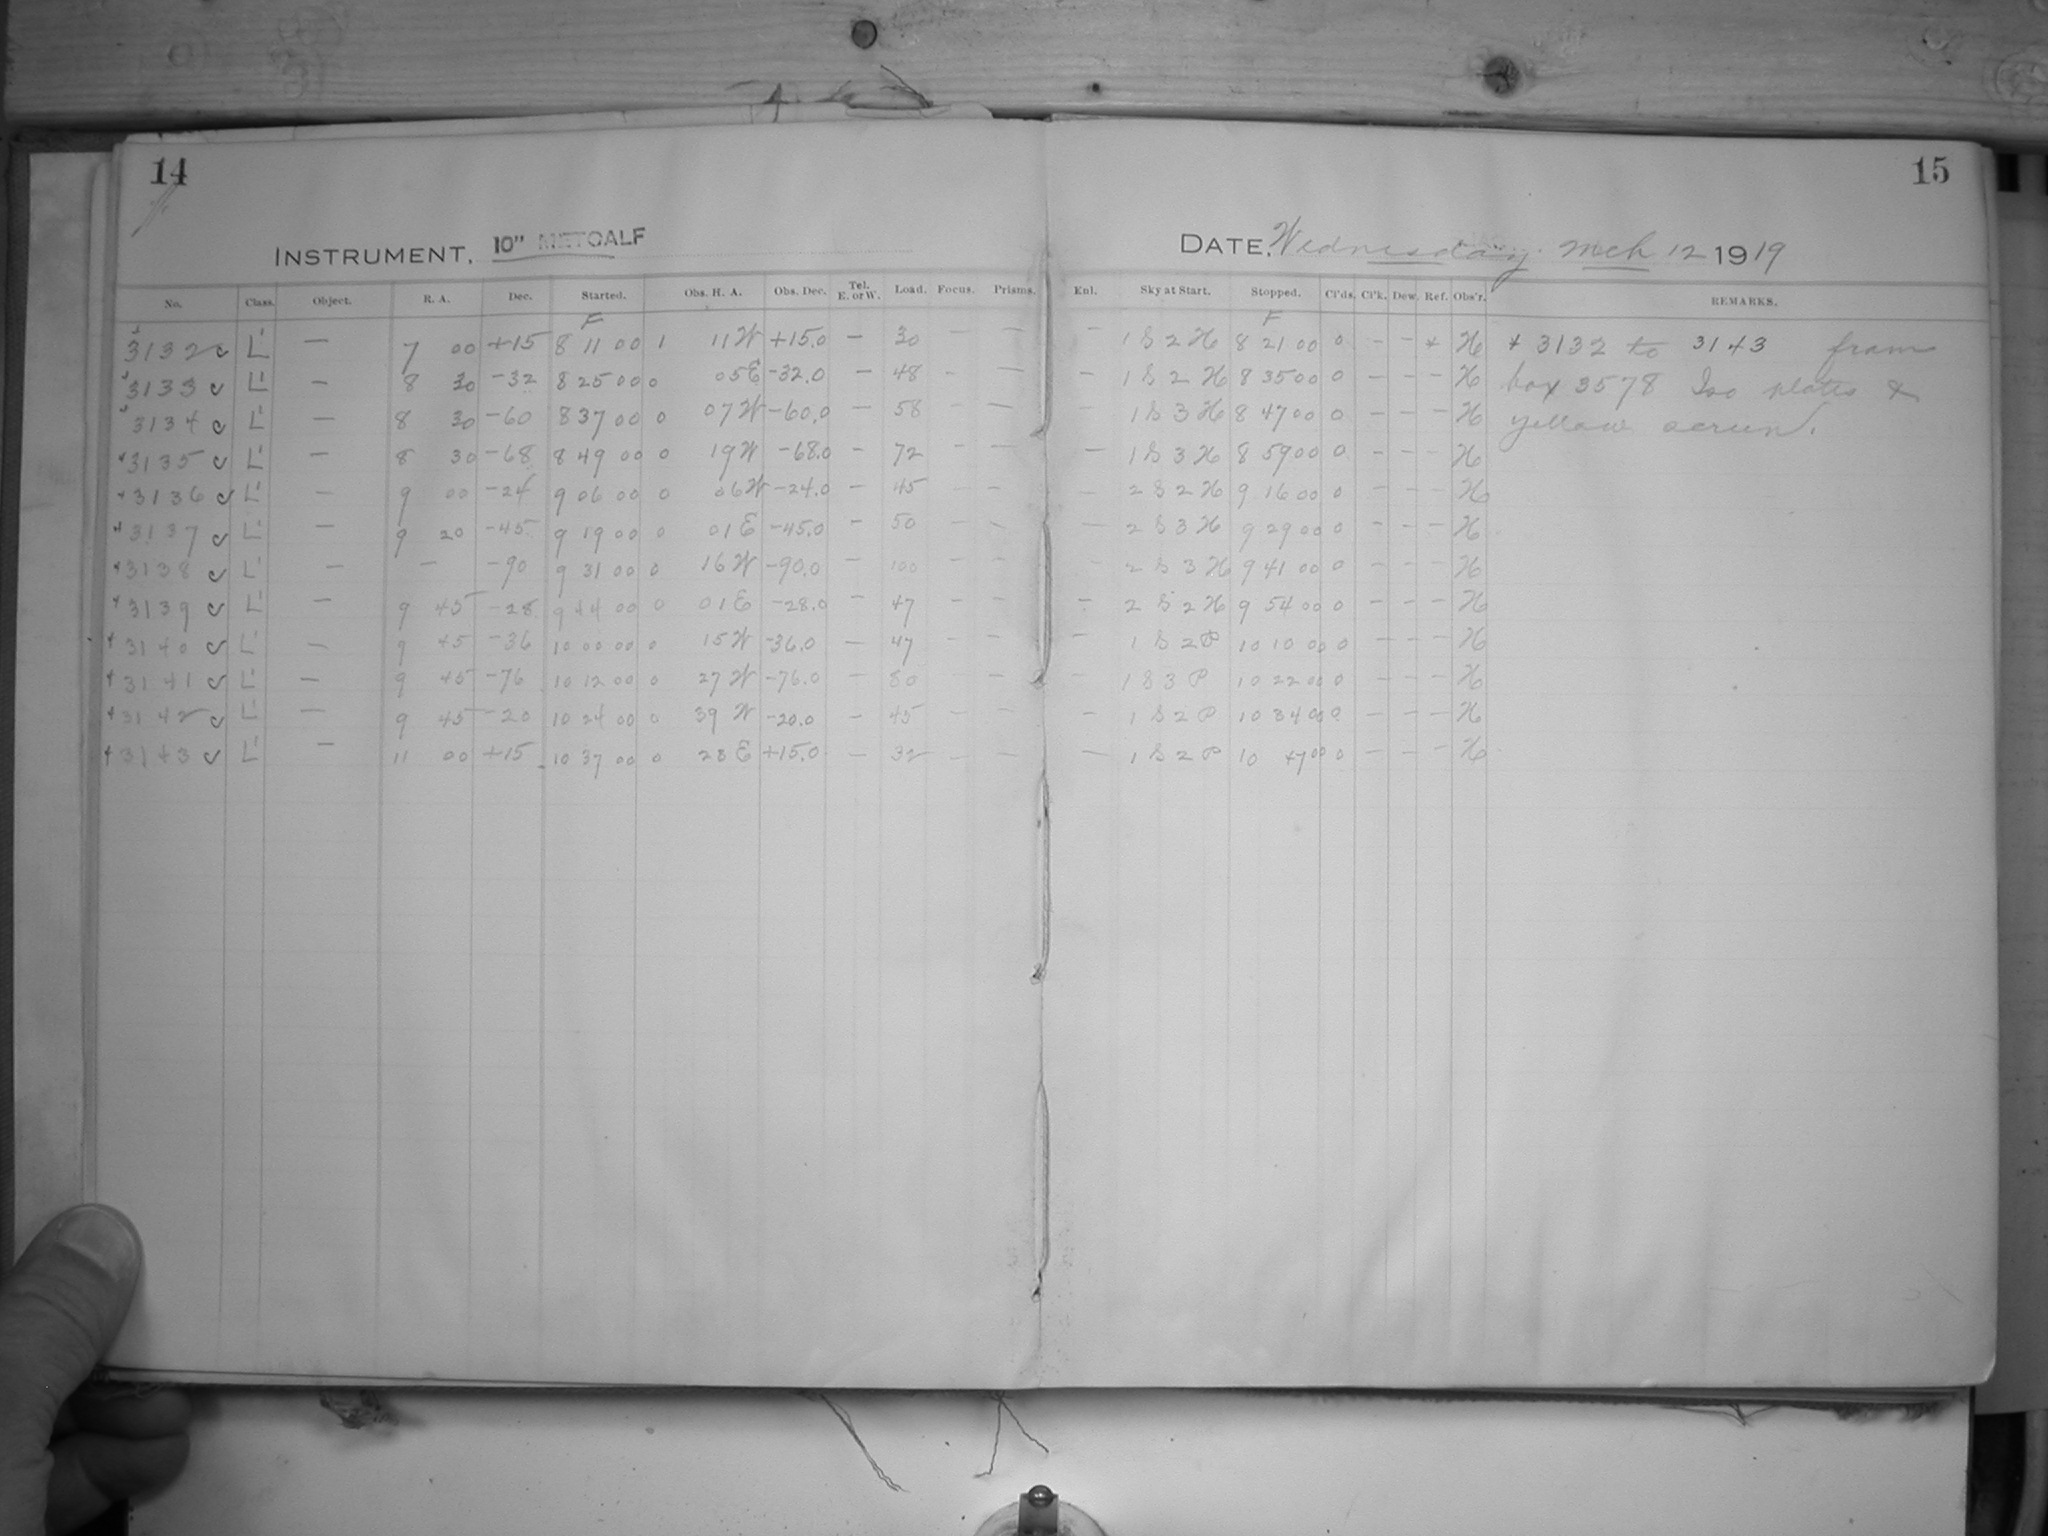 14
15
INSTRUMENT, 10" METCALF
DATE, Wednesday Mch 12 1919
No. Class. Object. R. A. Dec. Started. Obs. H. A. Obs. Dec. Tel. E. or W. Load. Focus. Prisms. Enl. Sky at Start. Stopped. Cl'ds. Cl'k. Dew. Ref. Obs'r. REMARKS.
F F
3132 L' — 7 00 +15 8 11 00 1 11 W +15.0 — 30 — — — 1 S 2 H 8 21 00 0 — — * H * 3132 to 3143 from
3133 L' — 8 30 -32 8 25 00 0 05 E -32.0 — 48 — — — 1 S 2 H 8 35 00 0 — — — H box 3578 Iso plates &
3134 L' — 8 30 -60 8 37 00 0 07 W -60.0 — 58 — — — 1 S 3 H 8 47 00 0 — — — H yellow screen.
3135 L' — 8 30 -68 8 49 00 0 19 W -68.0 — 72 — — — 1 S 3 H 8 59 00 0 — — — H
3136 L' — 9 00 -24 9 06 00 0 06 W -24.0 — 45 — — — 2 S 2 H 9 16 00 0 — — — H
3137 L' — 9 20 -45 9 19 00 0 01 E -45.0 — 50 — — — 2 S 3 H 9 29 00 0 — — — H
3138 L' — — -90 9 31 00 0 16 W -90.0 — 100 — — — 2 S 3 H 9 41 00 0 — — — H
3139 L' — 9 45 -28 9 44 00 0 01 E -28.0 — 47 — — — 2 S 2 H 9 54 00 0 — — — H
3140 L' — 9 45 -36 10 00 00 0 15 W -36.0 — 47 — — — 1 S 2 P 10 10 00 0 — — — H
3141 L' — 9 45 -76 10 12 00 0 27 W -76.0 — 80 — — — 1 S 3 P 10 22 00 0 — — — H
3142 L' — 9 45 -20 10 24 00 0 39 W -20.0 — 45 — — — 1 S 2 P 10 34 00 0 — — — H
3143 L' — 11 00 +15 10 37 00 0 28 E +15.0 — 32 — — — 1 S 2 P 10 47 00 0 — — — H